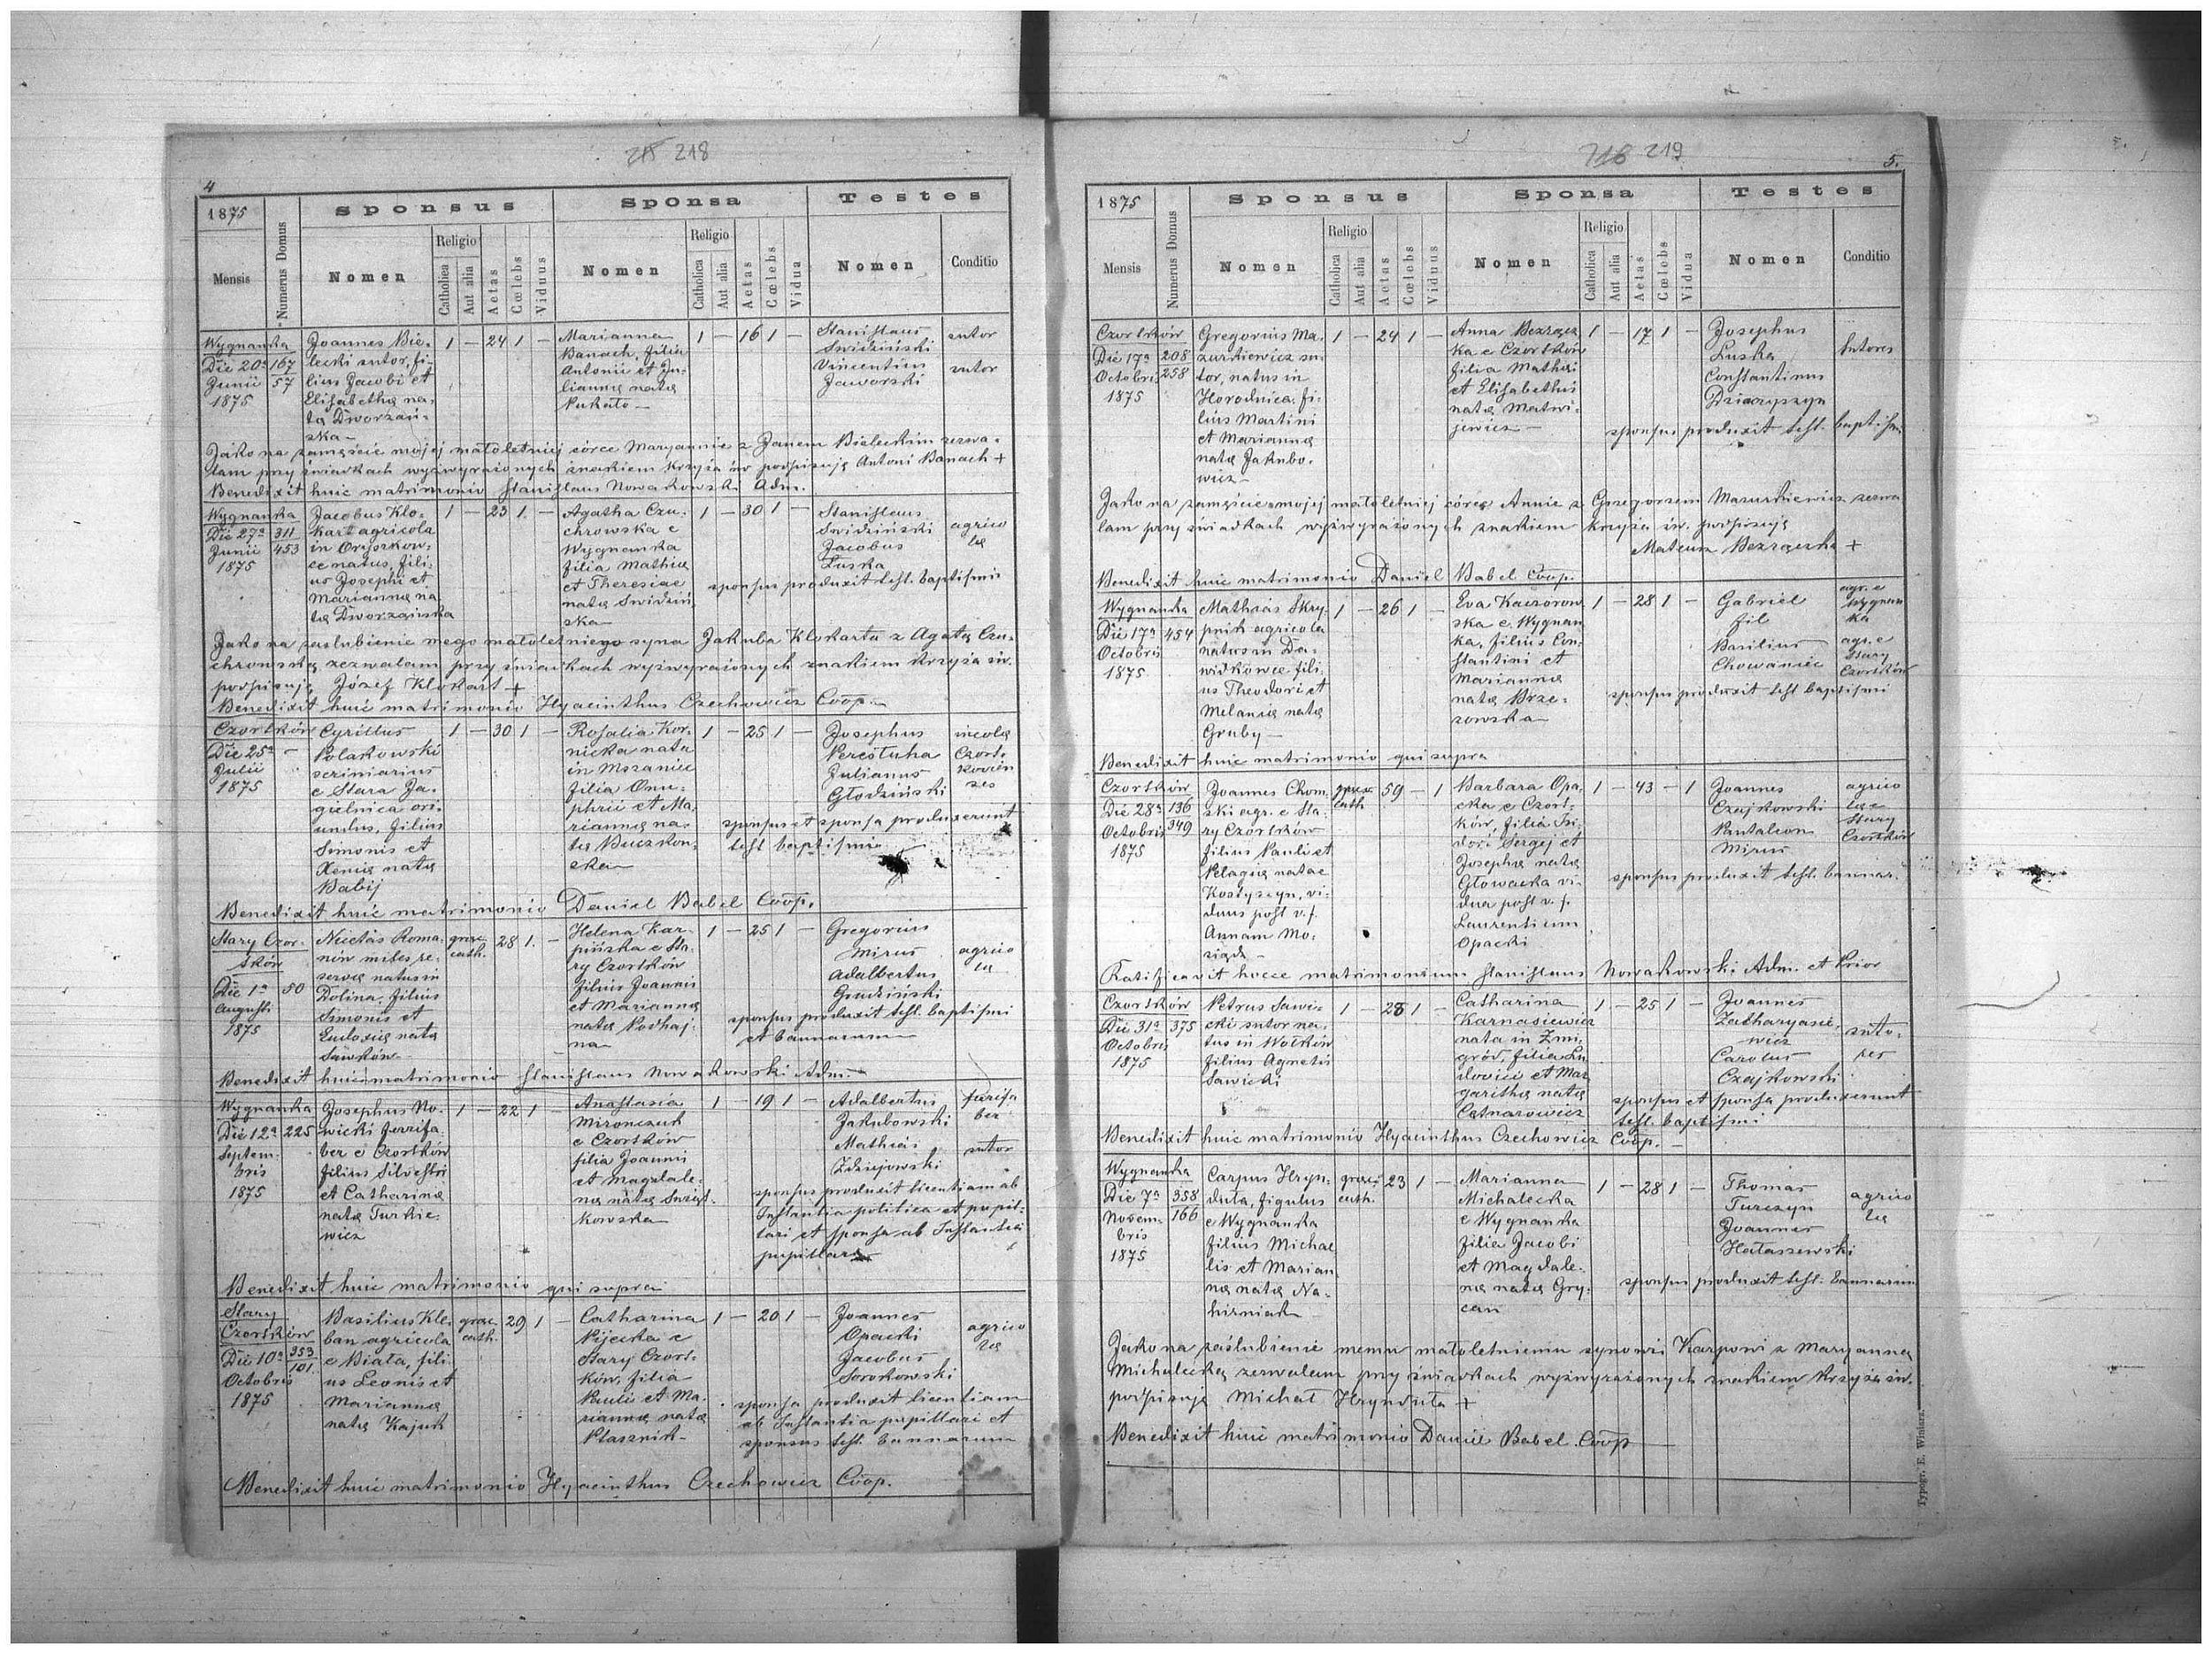 215 218
4
1875
Mensis
Numerus Domus
Sponsus
Nomen
Religio
Catholica
Aut alia
Aetas
Cœlebs
Viduus
Sponsa
Nomen
Religio
Catholica
Aut alia
Aetas
Cœlebs
Vidua
Testes
Nomen
Conditio
Wygnanka
Die 20a 167
Junii 57
1875
Joannes Bie-
lecki sutor, fi-
lius Jacobi et
Elisabethæ na-
tæ Dworzań-
ska
1 — 24 1 —
Marianna
Banach, filia
Antonii et Ju-
liannæ natæ
Pukało
1 — 16 1 —
Stanislaus
Swidziński
Vincentius
Jaworski
sutor
sutor
Jako na zamęście mojej małoletniej córce Maryannie z Janem Bieleckim zezwa-
lam przy świadkach wyżwyrażonych znakiem krzyża św podpisuję Antoni Banach +
Benedixit huic matrimonio Stanislaus Nowakowski Adm.
Wygnanka
Die 27a 311
Junii 453
1875
Jacobus Klo-
kart agricola
in Oryszkow-
ce natus, fili-
us Josephi et
Mariannæ na-
tæ Dworzańska
1 — 23 1 —
Agatha Czu-
chrowska e
Wygnanka
filia Mathiæ
et Theresiae
natæ Swidziń
ska
1 — 30 1 —
Stanislaus
Swidziński
Jacobus
Luska
agrico
læ
sponsus produxit test. baptismi
Jako na zaslubienie mego małoletniego syna Jakuba Klokarta z Agatą Czu-
chrowską zezwalam przy świadkach wyżwyrażonych znakiem krzyża św.
podpisuję Józef Klokart +
Benedixit huic matrimonio Hyacinthus Czechowicz Coop.
Czortków
Die 25a —
Julii
1875
Cyrillus
Polakowski
scriniarius
e Stara Ja-
gielnica ori-
undus, filius
Simonis et
Xeniæ natæ
Babij
1 — 30 1 —
Rosalia Kor-
nicka nata
in Mszaniec
filia Onu-
phrii et Ma-
riannæ na-
tæ Buczkow-
ska
1 — 25 1 —
Josephus
Perestuha
Julianus
Głodziński
incolæ
Czort-
kovien
ses
sponsus et sponsa produxerunt
test baptismi
Benedixit huic matrimonio Daniel Babel Coop.
Stary Czor-
tków
Die 1a 50
Augusti
1875
Nicetas Roma-
nów miles re-
servæ natus in
Dolina, filius
Simonis et
Eudoxiæ natæ
Sawków
græc.
cath.
28 1 —
Helena Kar-
pińska e Sta-
ry Czortków
filius Joannis
et Mariannæ
natæ Podhaj-
na
1 — 25 1 —
Gregorius
Mirus
Adalbertus
Grudziński
agrico
læ
sponsus produxit test. baptismi
et bannorum
Benedixit huic matrimonio Stanislaus Nowakowski Adm.
Wygnanka
Die 12a 225
Septem-
bris
1875
Josephus No-
wicki ferrifa-
ber e Czortków
filius Silvestri
et Catharinæ
natæ Turkie-
wicz
1 — 22 1 —
Anastasia
Mironczuk
e Czortków
filia Joannis
et Magdale-
næ natæ
kowska
1 — 19 1 —
Adalbertus
Jakubowski
Mathias
Zdziejowski
ber
sutor
sponsus produxit licentiam ab
Instantia politica et pupil-
lari et sponsa ab Instantia
pupillari
Benedixit huic matrimonio qui supra
Stary
Czortków
Die 10a 353
Octobris 101.
1875
Basilius Kle-
ban agricola
e Biała, fili-
us Leonis et
Mariannæ
natæ Kajuk
græc.
cath.
29 1 —
Catharina
Pijecka e
Stary Czort-
ków, filia
Pauli et Ma-
riannæ natæ
Ptasznik
1 — 20 1 —
Joannes
Opacki
Jacobus
Sorokowski
agrico
læ
sponsa produxit licentiam
ab Instantia pupillari et
sponsus test. bannorum
Benedixit huic matrimonio Hyacinthus Czechowicz Coop.
216 219
5.
1875
Mensis
Numerus Domus
Sponsus
Nomen
Religio
Catholica
Aut alia
Aetas
Cœlebs
Viduus
Sponsa
Nomen
Religio
Catholica
Aut alia
Aetas
Cœlebs
Vidua
Testes
Nomen
Conditio
Czortków
Die 17a 208
Octobris 258
1875
Gregorius Ma-
zurkiewicz su-
tor, natus in
Horodnica, fi-
lius Martini
et Mariannæ
natæ Jakubo-
wicz
1 — 24 1 —
Anna Bezrącz
ka e Czortków
filia Mathæi
et Elisabethæ
natæ Matwi-
jewicz
1 — 17 1 —
Josephus
Luska
Constantinus
Dziaryszyn
sutores
sponsus produxit test. baptismi
Jako na zamęście mojej małoletniej córce Annie z Grzegorzem Mazurkiewicz zezwa
lam przy świadkach wyżwyrażonych znakiem krzyża św. podpisuję
Mateusz Bezrączka +
Benedixit huic matrimonio Daniel Babel Coop.
Wygnanka
Die 17a 454
Octobris
1875
Mathias Skry-
pnik agricola
natus in Da-
widkowce fili-
us Theodori et
Melaniæ natæ
Gruby
1 — 26 1 —
Eva Kaczorow
ska e Wygnan
ka, filius Con-
stantini et
Mariannæ
natæ Brze-
zowska
1 — 28 1 —
Gabriel
Fil
Basilius
Chowaniec
agr. e
Wygnan
ka
agr. e
Stary
Czortków
sponsus produxit test baptismi
Benedixit huic matrimonio qui supra
Czortków
Die 28a 136
Octobris 349
1875
Joannes Chom-
ski agr. e Sta-
ry Czortków
filius Pauli et
Pelagiæ natae
Kostyszyn, vi-
duus post v. f.
Annam Mo-
ziądz
græc.
cath
59 — 1
Barbara Opa-
cka e Czort-
ków, filia Isi-
dori Sergej et
Josephæ natæ
Głowacka vi-
dua post v. f.
Laurentium
Opacki
1 — 43 — 1
Joannes
Czajkowski
Pantaleon
Mirus
agrico
læ e
Stary
Czortków
sponsus produxit test. bannor.
Ratificavit hocce matrimonium Stanislaus Nowakowski Adm. et Prior
Czortków
Die 31a 375
Octobris
1875
Petrus Sawic-
cki sutor na-
tus in Wołków
filius Agnetis
Sawicki
1 — 28 1 —
Catharina
Karnasiewicz
nata in Zmi-
gród, filia Lu
dovici et Mar
garithæ natæ
Cetnarowicz
1 — 25 1 —
Joannes
Zacharyasie-
wicz
Carolus
Czajkowski
suto-
res
sponsus et sponsa produxerunt
test. baptismi
Benedixit huic matrimonio Hyacinthus Czechowicz Coop.
Wygnanka
Die 7a 358
Novem- 166
bris
1875
Carpus Hryn-
duta, figulus
e Wygnanka
filius Michae
lis et Marian-
næ natæ Na-
hirniak
græc.
cath.
23 1 —
Marianna
Michalecka
e Wygnanka
filia Jacobi
et Magdale-
næ natæ Gry-
can
1 — 28 1 —
Thomas
Turczyn
Joannes
Hałaszewski
agrico
læ
sponsus produxit test. bannorum
Jako na zaślubienie memu małoletniemu synowi Karpowi z Maryanną
Michalecką zezwalam przy świadkach wyżwyrażonych znakiem krzyża św.
podpisuję Michał Hrynduta +
Benedixit huic matrimonio Daniel Babel Coop
Typogr. E. Winiarz.